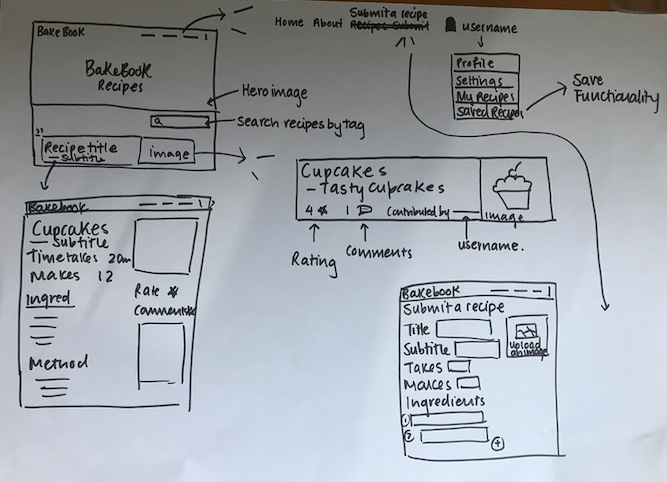 BakeBook
BakeBook
Recipes
Recipe title
- Subtitle
image
Hero image
Search recipes by tag
Submit a recipe
Home About Recipes Submit
username
Profile
Settings
My Recipes
Saved Recipes
Save
Functionality
Cupcakes
- Tasty cupcakes
4 1 Contributed by
image
Rating
Comments
username.
Bakebook
Cupcakes
- Subtitle
Time takes 20m
Makes 12
Ingred
Method
Rate
Comments
Bakebook
Submit a recipe
Title
Subtitle
Takes
Makes
Ingredients
1
2
+
upload
an image